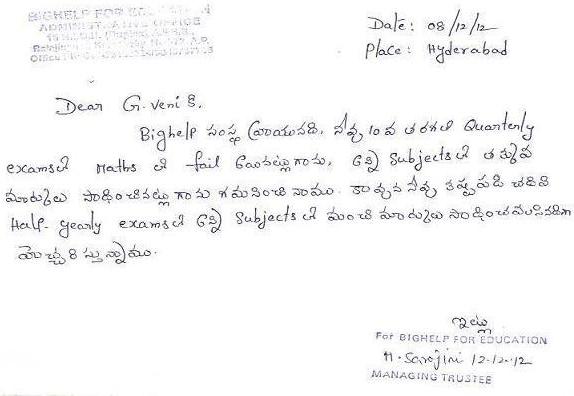 BIGHELP FOR EDUCATION
ADMINISTRATIVE OFFICE
Date: 08/12/12
Place: Hyderabad
Dear G. veni కి,
Bighelp సంస్థ వ్రాయునది, నీవు 10 వ తరగతి Quarterly
exams లో Maths లో fail అయినట్లుగాను, అన్ని Subjects లో తక్కువ
మార్కులు సాధించినట్లు గాను గమనించి నాము. కావున నీవు కష్టపడి చదివి
Half-yearly exams లో అన్ని Subjects లో మంచి మార్కులు సాధించవలసినదిగా
హెచ్చరిస్తున్నాము.
ఇట్లు
For BIGHELP FOR EDUCATION
M. Sarojini 12-12-12
MANAGING TRUSTEE